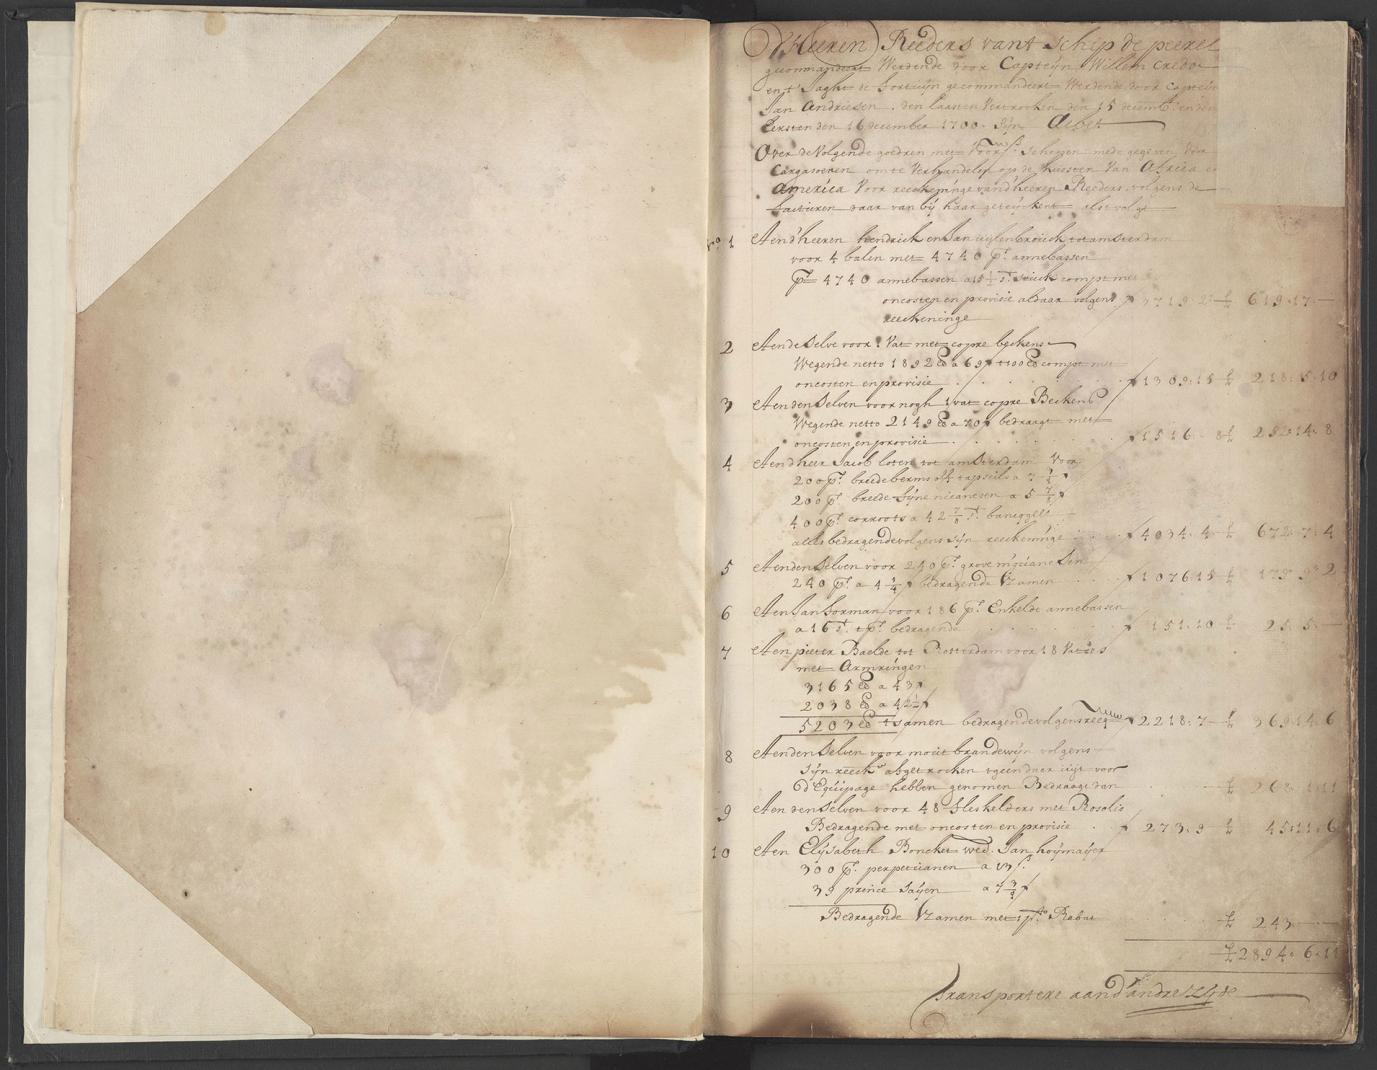 D'Heeren Reeders vant schip de peerel
gecommandeert Werdende door Capteijn Willem credo
ent Jaght te gecommandeert Werdende door Capteijn
Jan Andriesen. den laasten Vertrocken den 15 decemb: en den
Eersten den 16 december 1700. Sijn Debet
Over de Volgende goederen met Voors: Scheepen mede gegeven Voor
Cargasoenen om te Verhandelen op de kusten Van Africa e
America Voor reeckeninge vand'heeren Reeders volgens de
factueren daar van bij haar geteijckent als volgt
No 1 Aend'heeren hendrick en Jan uijlenbroeck tot amsterdam
voor 4 balen met 4740 ps annebassen
ps 4740 annebassen a 15 1/2 st: stuck compt met
oncosten en provisie aldaar volgens f 3719. 2 £ 619.17.—
reeckeninge
2 Aen de Selve voor 1 Vat met copre beckens
Wegende netto 1892 lb a 69 f t 100 lb compt met
oncosten en provisie f 1309.15 £ 218. 5.10
3 Aen den Selven voor nogh 1 vat copre Beckens
Wegende netto 2149 lb a 70 f bedraagt met
oncosten en provisie f 1516. 8 £ 252.14. 8
4 Aend'heer Jacob loten tot amsterdam Voor
200 ps: breede tapseils a 7 1/4 f
200 ps: breede fijne nicanesen a 5 7/8 f
400 ps: corroots a 42 7/8 st:
alles bedragende volgens sijn reeckeninge f 4034. 4 £ 672. 7. 4
5 Aen den Selven voor 240 ps: grove
240 ps: a 4 1/4 f bedragende tzamen f 1076.15 £ 179. 9. 2
6 Aen Jan horman voor 186 ps: Enkelde annebassen
a 16 st: t ps: bedragende f 151.10 £ 25. 5.—
7 Aen pieter Baelde tot Rotterdam voor 18 Vatjes
met Armringen
3165 lb a 43 f
2038 lb a 42 1/2 f
5203 lb tsamen bedragende volgens reeq f 2218. 7 £ 369.14. 6
8 Aen den Selven voor moeit brandewijn volgens
sijn reeck: afgetrocken tgeen daer uijt voor
d'Equipage hebben genomen Bedraagt dan £ 268. 1.11
9 Aen den Selven voor 48 fleskelders met Rosolis
Bedragende met oncosten en provisie f 273. 9 £ 45.11. 6
10 Aen Elijsabeth Boncket wed: Jan hoijmaijer
300 ps: perpetuanen a
39 prince Saijen a 7 3/4 f
Bedragende tzamen met 1 pcto Rabat £ 243
£ 2894. 6.11
Transportere aand'andre Zijde